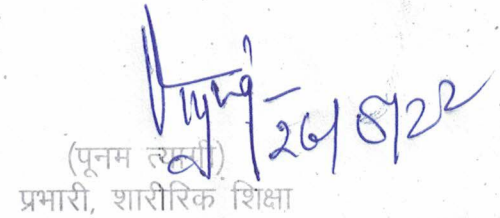 26/8/22
(पूनम त्यागी)
प्रभारी, शारीरिक शिक्षा